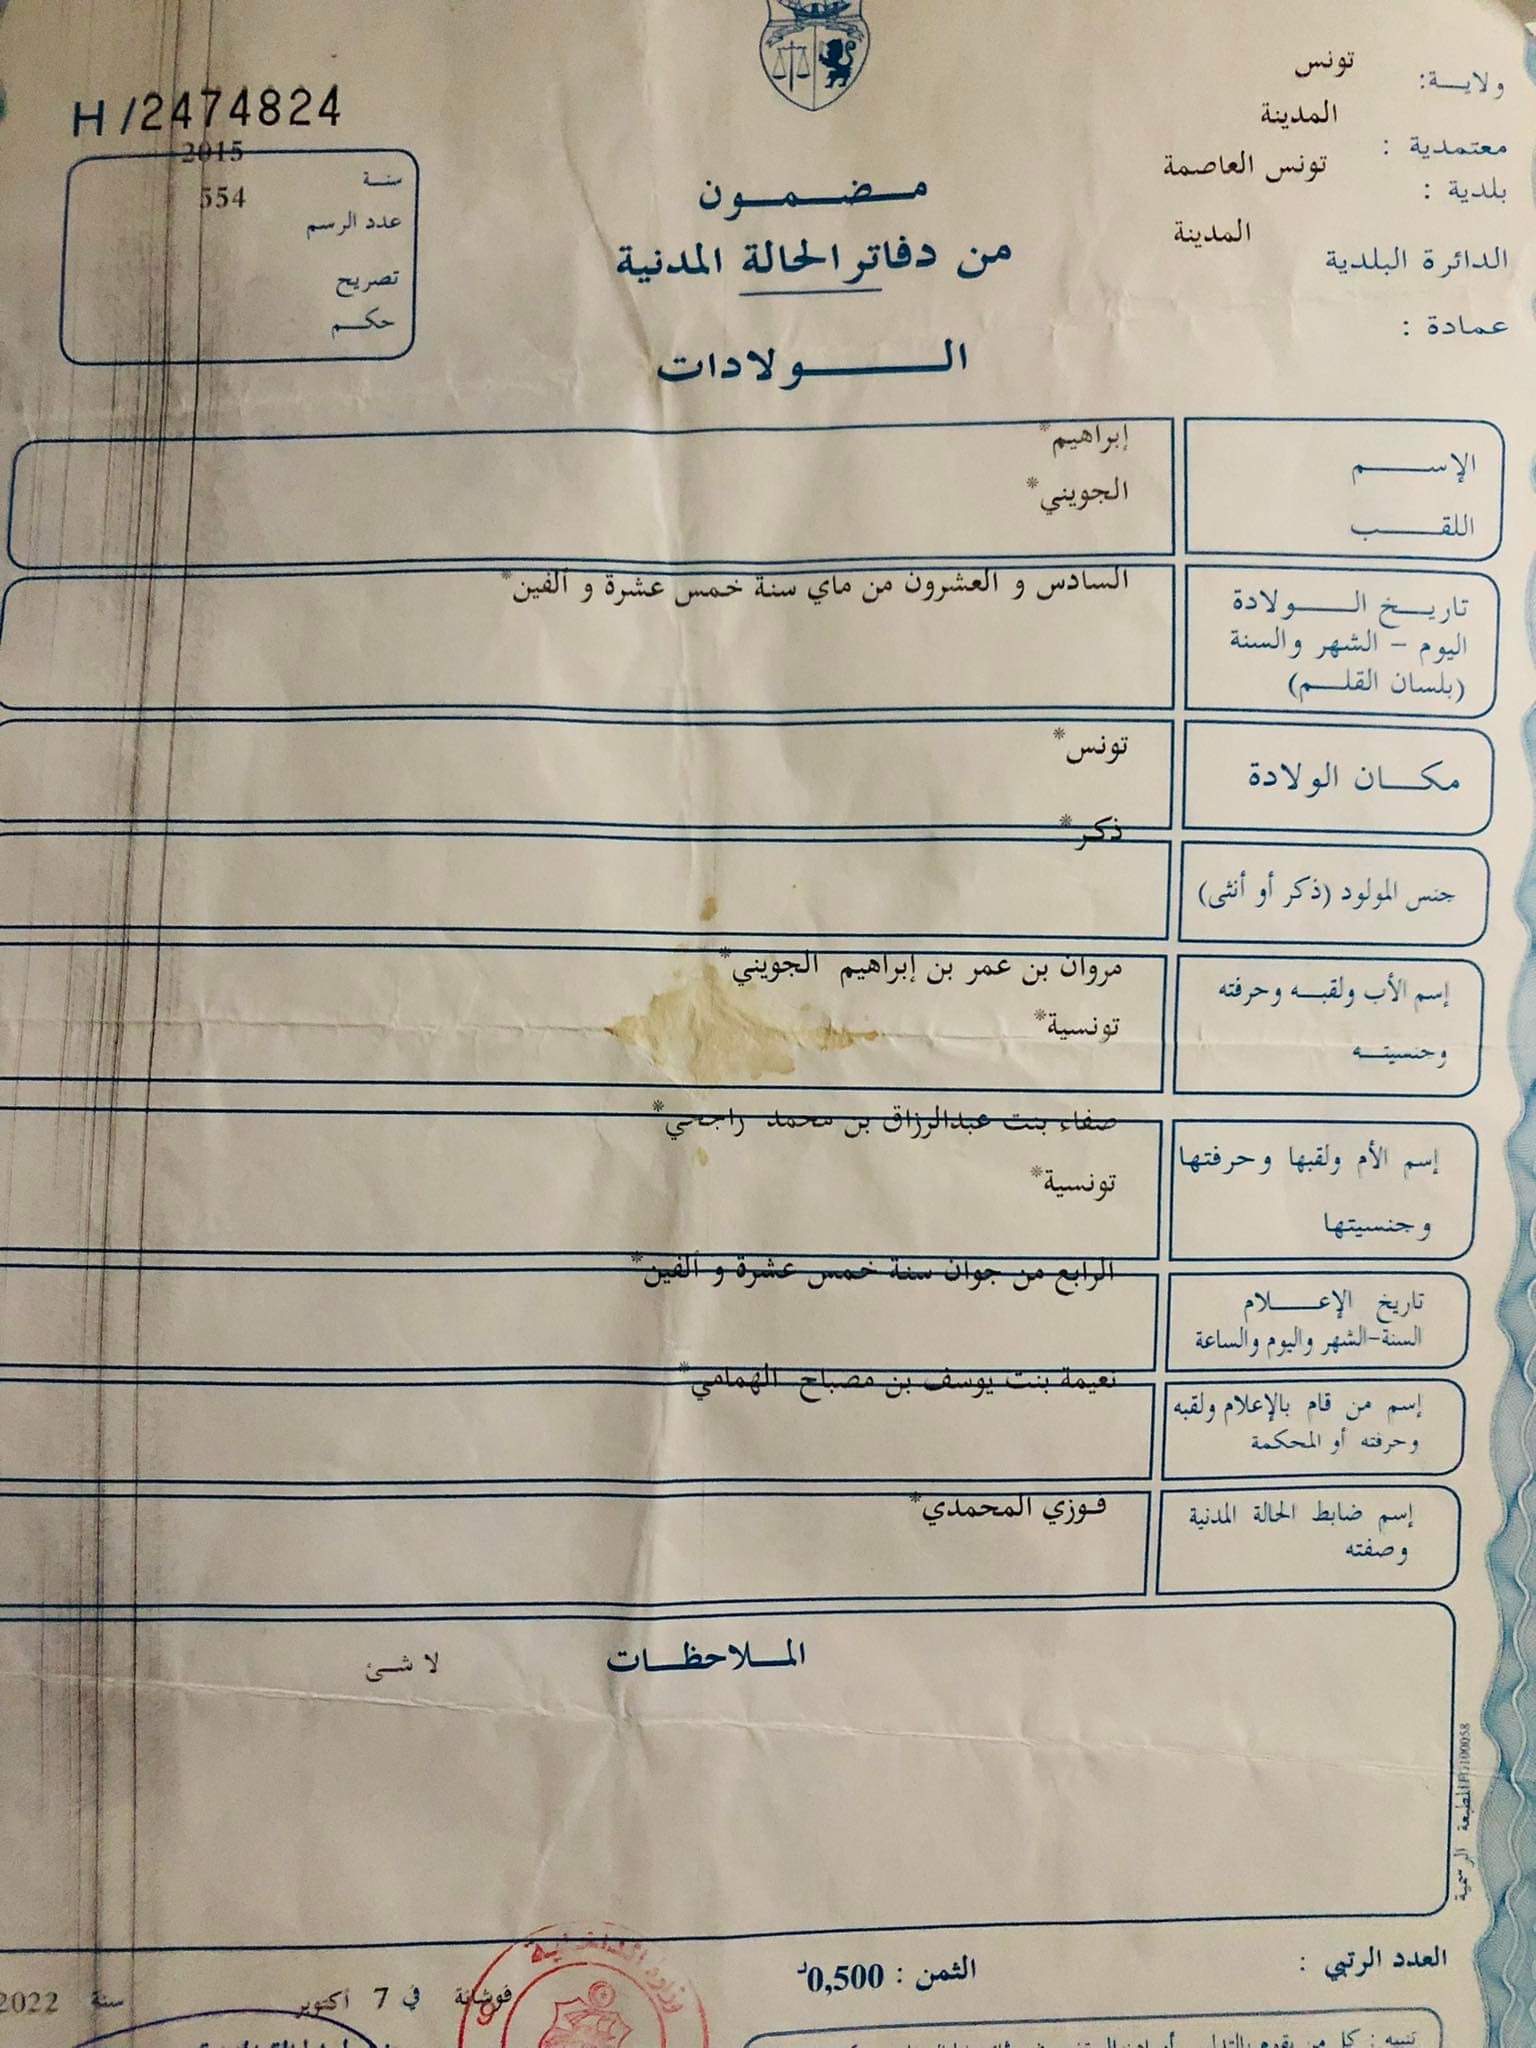 ولاية: تونس
معتمدية : المدينة
بلدية : تونس العاصمة
الدائرة البلدية المدينة
عمادة :
H/2474824
سنة 2015
عدد الرسم 554
تصريح
حكم
مضمون
من دفاتر الحالة المدنية
الولادات
الإسم إبراهيم*
اللقب الجويني*
تاريخ الولادة السادس و العشرون من ماي سنة خمس عشرة و ألفين*
اليوم - الشهر والسنة
(بلسان القلم)
مكان الولادة تونس*
جنس المولود (ذكر أو أنثى) ذكر*
إسم الأب ولقبه وحرفته مروان بن عمر بن إبراهيم الجويني*
وجنسيته تونسية*
إسم الأم ولقبها وحرفتها صفاء بنت عبدالرزاق بن محمد راجحي*
وجنسيتها تونسية*
تاريخ الإعلام الرابع من جوان سنة خمس عشرة و ألفين*
السنة-الشهر واليوم والساعة
إسم من قام بالإعلام ولقبه نعيمة بنت يوسف بن مصباح الهمامي*
وحرفته أو المحكمة
إسم ضابط الحالة المدنية فوزي المحمدي*
وصفته
الملاحظات لا شئ
المطبعة الرسمية
العدد الرتبي :
الثمن : 0,500د
فوشانة في 7 أكتوبر سنة 2022
تنبيه : كل من يقوم